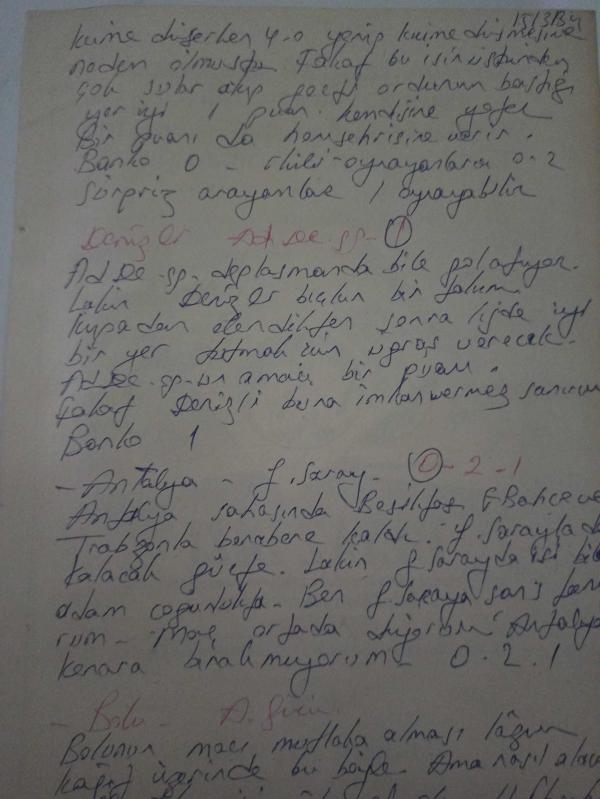 15/3/84
küme düşerken 4-0 yenip küme düşmesine
neden olmuştu. Fakat bu işin üstünden
çok sular akıp geçti ordunun bastığı
yer iyi 1 puan kendisine yeter
Bir puanı da hemşehrisine verir.
Banko 0 - oynayanlara 0-2
sürpriz arayanlar 1 oynayabilir
Denizli Ad. De. sp. - 1
Ad. De. sp. deplasmanda bile gol atıyor.
Lakin Denizli bir takım.
kupadan elendikten sonra ligde iyi
bir yer tutmak için uğraş verecek.
Ad. De. sp. un amacı bir puan.
Fakat Denizli buna imkan vermez sanırım
Banko 1
- Antalya - G. Saray. 0-2-1
Antalya sahasında Beşiktaş F Bahçe ve
Trabzonla berabere kaldı. G. Sarayla da
kalacak güçte. Lakin G. Sarayda iş bit
adam çoğunlukta. Ben G. Saraya şans tanı
rum - maç ortada diyorum Antalya
kenara bırakmıyorum - 0-2-1
- Bolu - A. Gücü.
Bolunun maçı mutlaka alması lâzım
kağıt üzerinde bu böyle. Ama nasıl alaca